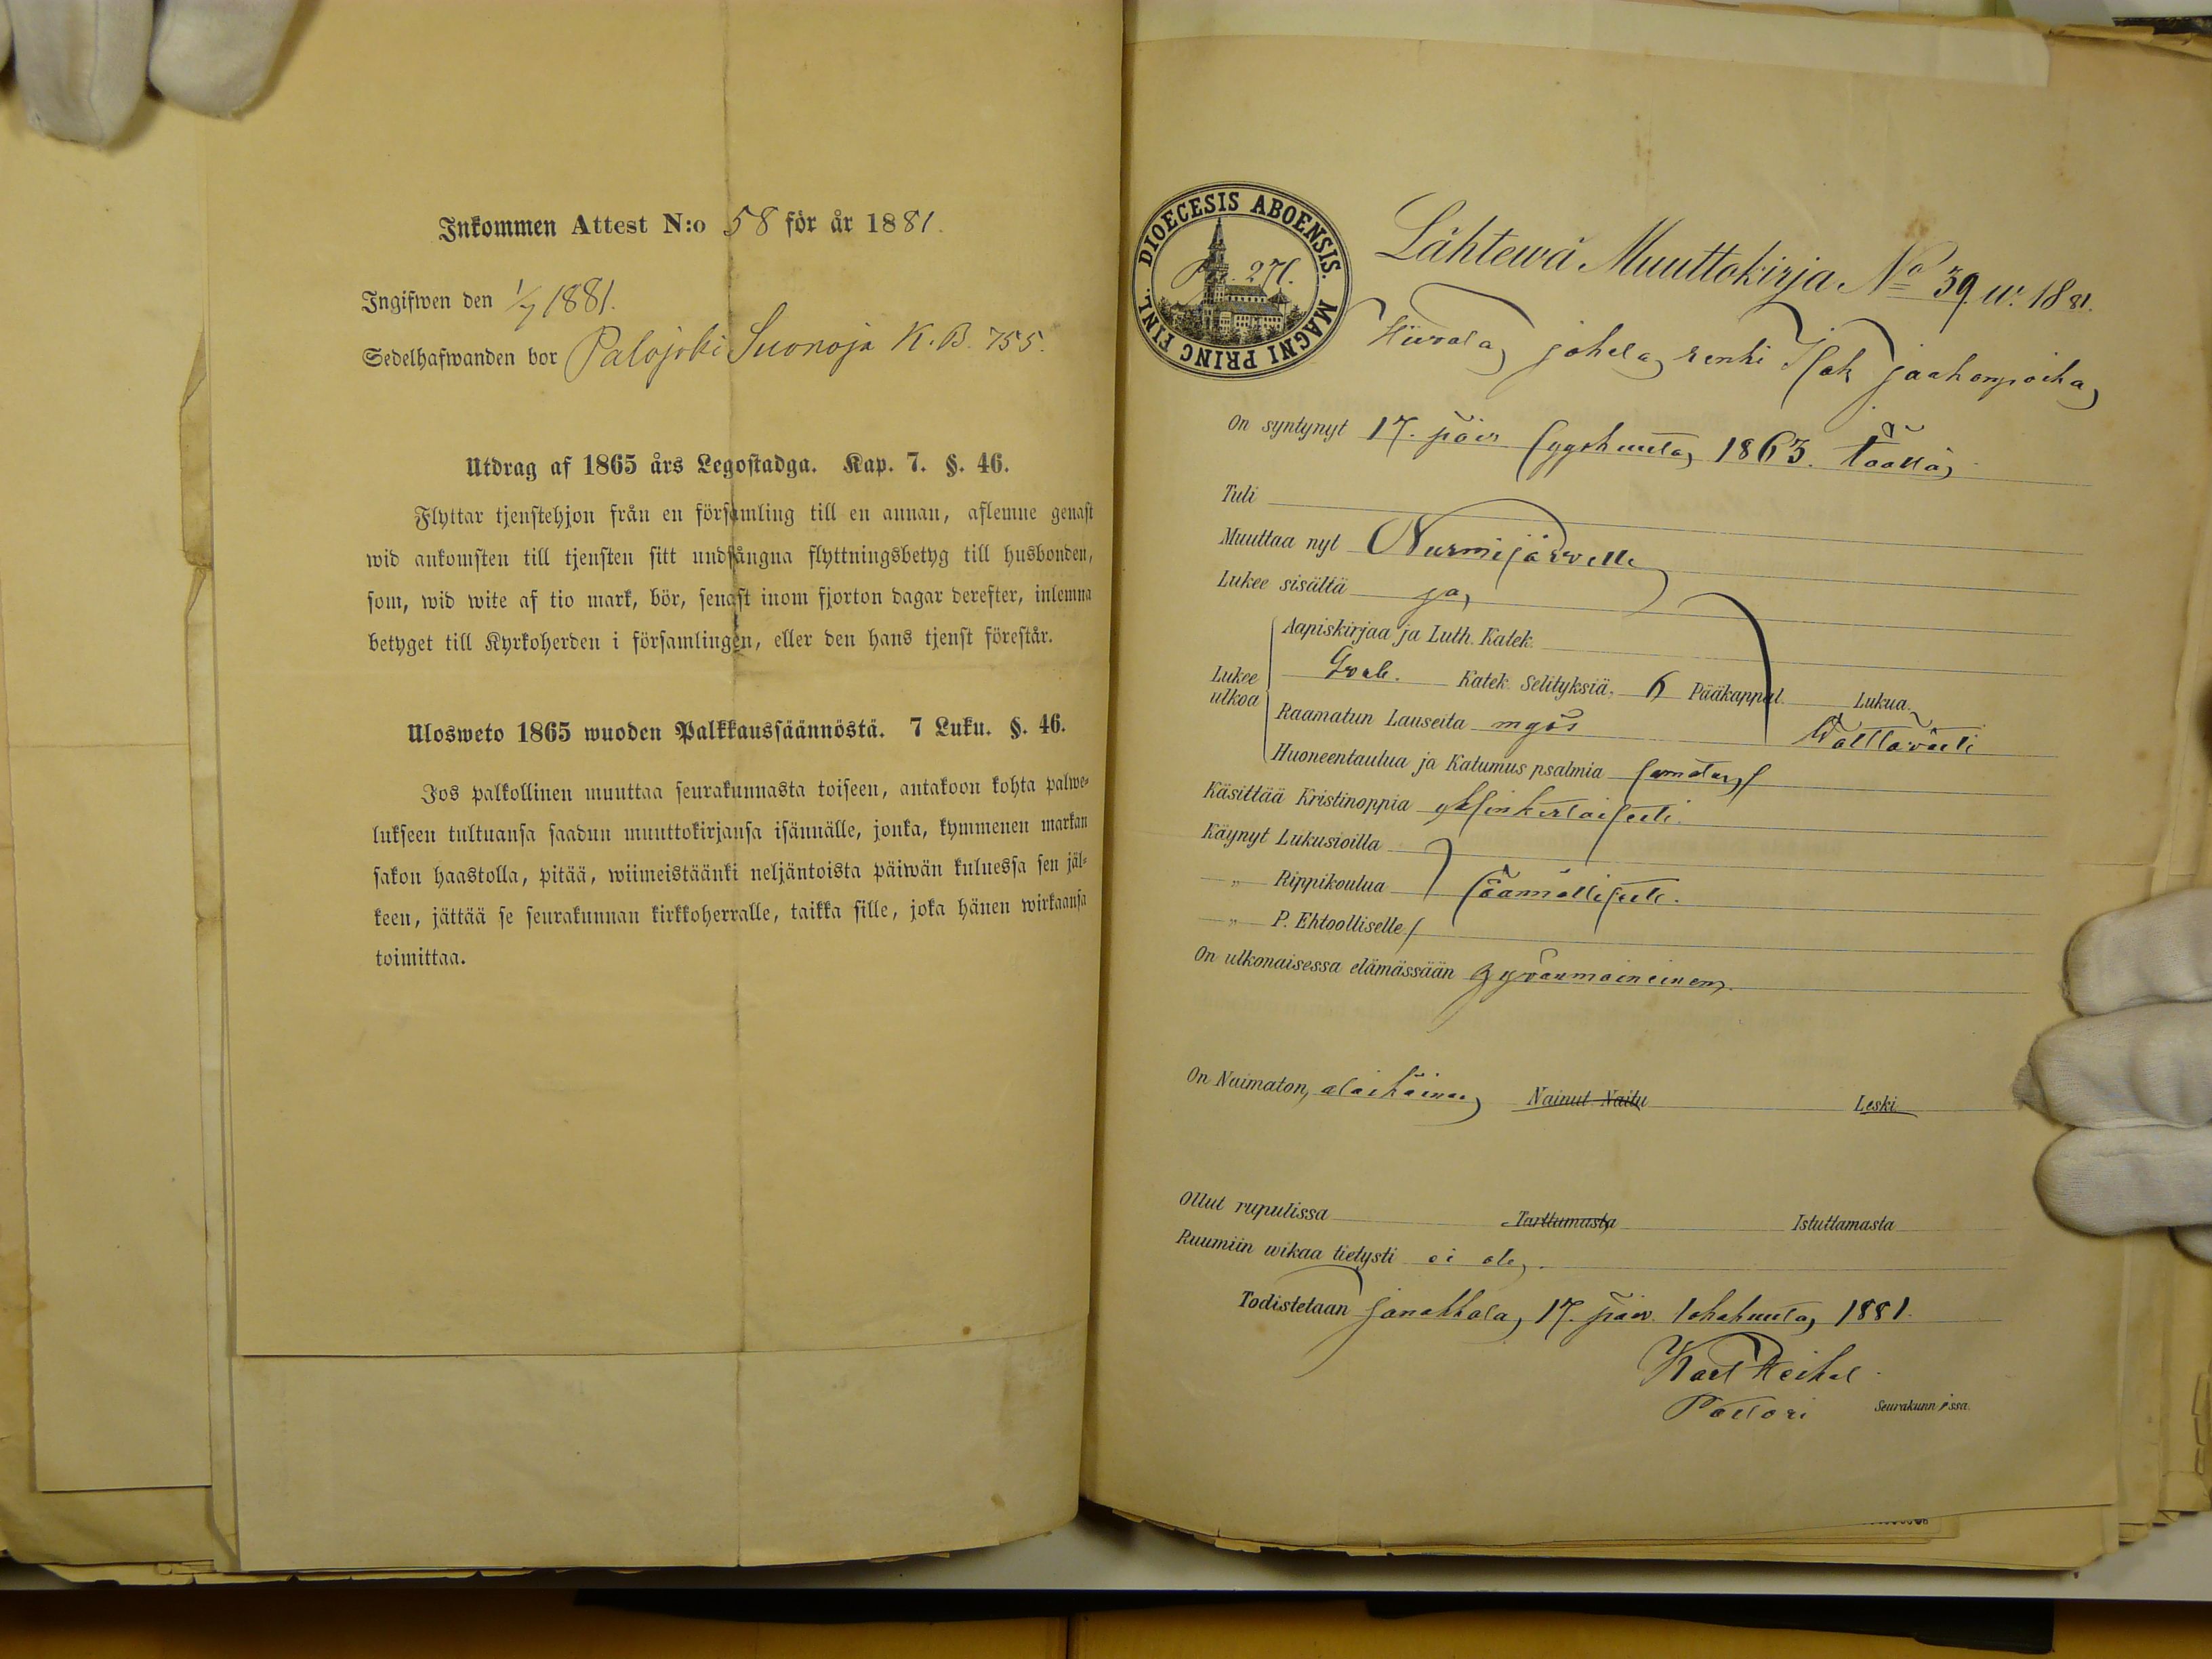 Inkommen Attest N:o 58 för år 1881.
Ingifwen den 1/7 1881.
Sedelhafwanden bor Palojoki Suonoja K.B. 755.
Utdrag af 1865 års Legostadga. Kap. 7. §. 46.
Flyttar tjenstehjon från en församling till en annan, aflemne genast
wid ankomsten till tjensten sitt undfångna flyttningsbetyg till husbonden,
som, wid wite af tio mark, bör, senast inom fjorton dagar derefter, inlemna
betyget till Kyrkoherden i församlingen, eller den hans tjenst förestår.
Ulosweto 1865 wuoden Palkkaussäännöstä. 7 Luku. §. 46.
Jos palkollinen muuttaa seurakunnasta toiseen, antakoon kohta palwe-
lukseen tultuansa saadun muuttokirjansa isännälle, jonka, kymmenen markan
sakon haastolla, pitää, wiimeistäänki neljäntoista päiwän kuluessa sen jäl-
keen, jättää se seurakunnan kirkkoherralle, taikka sille, joka hänen wirkaansa
toimittaa.
DIOECESIS ABOENSIS. MAGNI PRINC FINL.
271.
Lähtewä Muuttokirja No 39 w. 1881.
renki Isak Jaakonpoika
On syntynyt 17. päiv syyskuuta 1863. täällä
Tuli
Muuttaa nyt Nurmijärvelle
Lukee sisältä ja
Aapiskirjaa ja Luth. Katek.
Lukee ulkoa
Katek. Selityksiä, 6 Pääkappal. Lukua.
Raamatun Lauseita myös Wälttävästi
Huoneentaulua ja Katumus psalmia samaten
Käsittää Kristinoppia yksinkertaisesti.
Käynyt Lukusioilla
" Rippikoulua säännöllisesti.
" P. Ehtoolliselle
On ulkonaisessa elämässään hyvänmaineinen.
On Naimaton, alaikäinen Nainut Naitu Leski
Ollut rupulissa Tarttumasta Istuttamasta
Ruumiin wikaa tietysti ei ole.
Todistetaan Janakkala, 17. päiv. 1881.
Karl Heikel
Pastori Seurakunnissa.